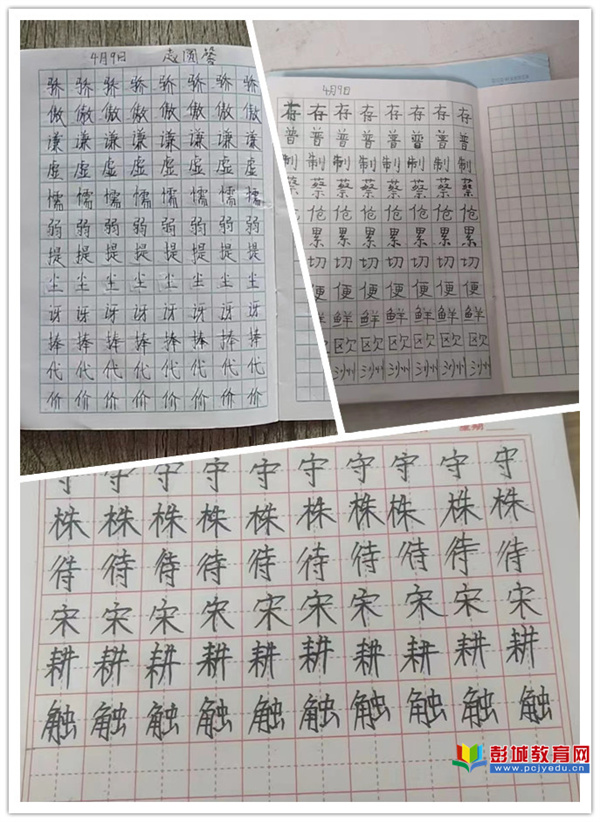 4月9日
骄骄骄骄骄骄骄骄
傲傲傲傲傲傲傲傲
谦谦谦谦谦谦谦谦
虚虚虚虚虚虚虚虚
懦懦懦懦懦懦懦懦
弱弱弱弱弱弱弱弱
提提提提提提提提
尘尘尘尘尘尘尘尘
讶讶讶讶讶讶讶讶
捧捧捧捧捧捧捧捧
代代代代代代代代
价价价价价价价价
4月9日
存存存存存存存存
普普普普普普普普
制制制制制制制制
蔡蔡蔡蔡蔡蔡蔡蔡
累累累累累累累累
切切切切切切切
便便便便便便便
鲜鲜鲜鲜鲜鲜鲜
欧欧欧欧欧欧欧
洲洲洲洲洲洲
星期
守守守守守守守守守守
株株株株株株株株株株
待待待待待待待待待待
宋宋宋宋宋宋宋宋宋宋
耕耕耕耕耕耕耕耕耕耕
触触触触触触触触触触
彭城教育网
www.pcjyedu.cn